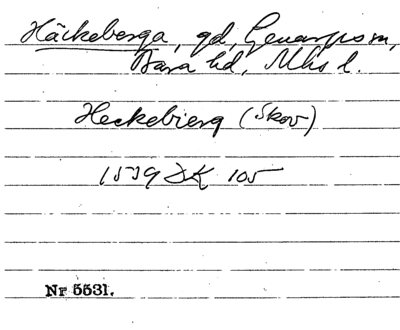 Häckeberga, gd, Genarps sn,
Bara hd, Mhs l.
Heckebierg (Skov)
1539 DK 105
Nr 5531.